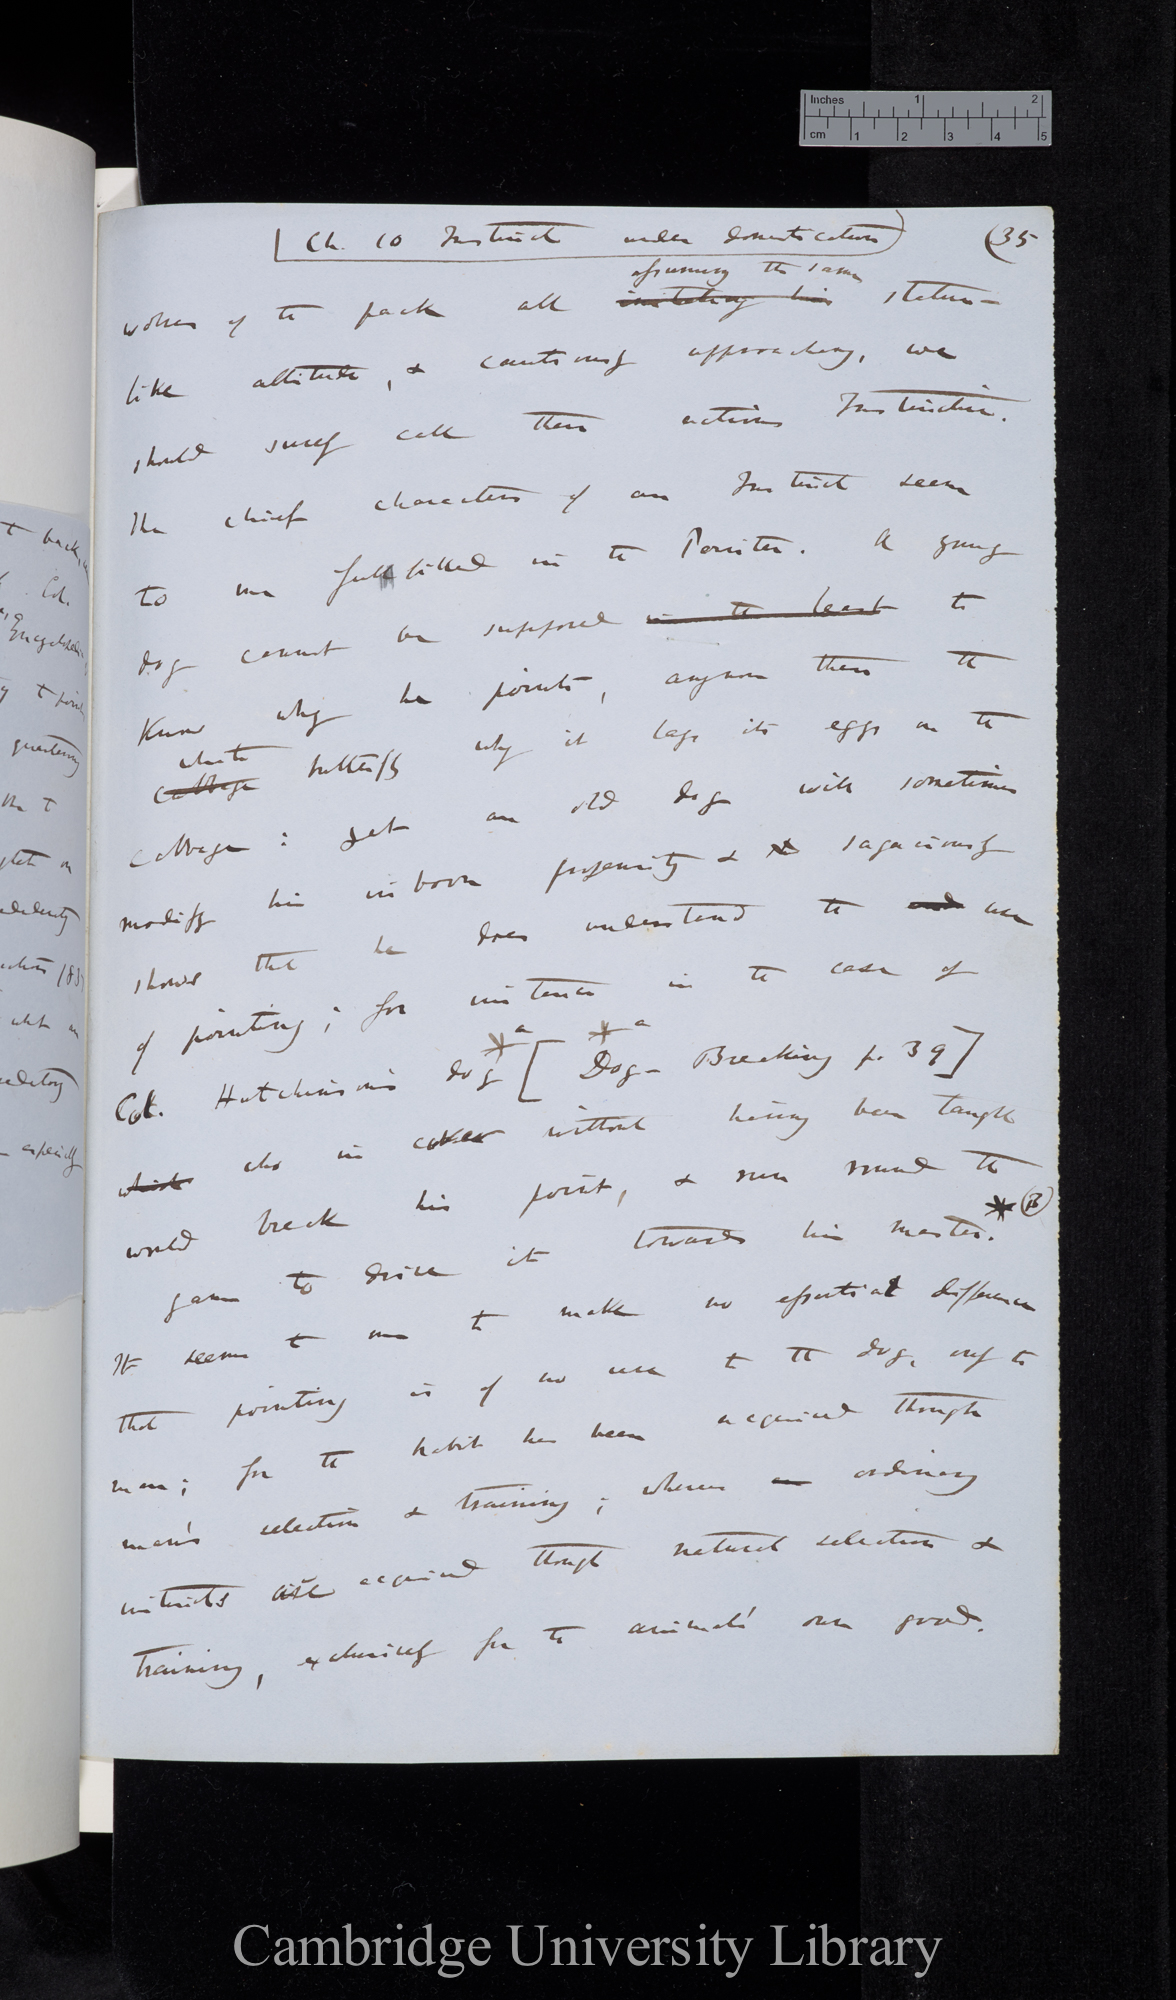 Inches 1 2
cm 1 2 3 4 5
Ch. 10 Instinct under domestication (35
assuming the same
wolves of the pack all imitating his statue-
like attitude, & cautiously approaching, we
should surely call these actions Instinctive.
The chief characters of an Instinct seem
to me fulfilled in the Pointer. A young
dog cannot be supposed in the least to
know why he points, anymore than the
white
cabbage butterfly why it lays its eggs on the
cabbage: yet an old dog will sometimes
modify his inborn propensity & sagaciously
shows that he does understand the end use
of pointing; for instance in the case of
a a
Col. Hutchinson's dog [ Dog-Breaking p. 39]
which who in cover without having been taught
would break his point, & run round the
(B)
game to drive it towards his master.
It seems to me to make no essential difference
that pointing is of no use to the dog, only to
man; for the habit has been acquired through
man's selection & training; whereas an ordinary
instincts are acquired through natural selection &
training, exclusively for the animals' own good.
t back,
Col.
t point
quartering
especially
Cambridge University Library